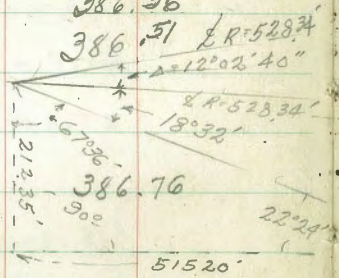 386.36
386.51
℄ R=528.34'
Δ=12°02'40"
℄ R=528.34'
18°32'
67°36'
212.35'
386.76
90°
22°24'
515.20'